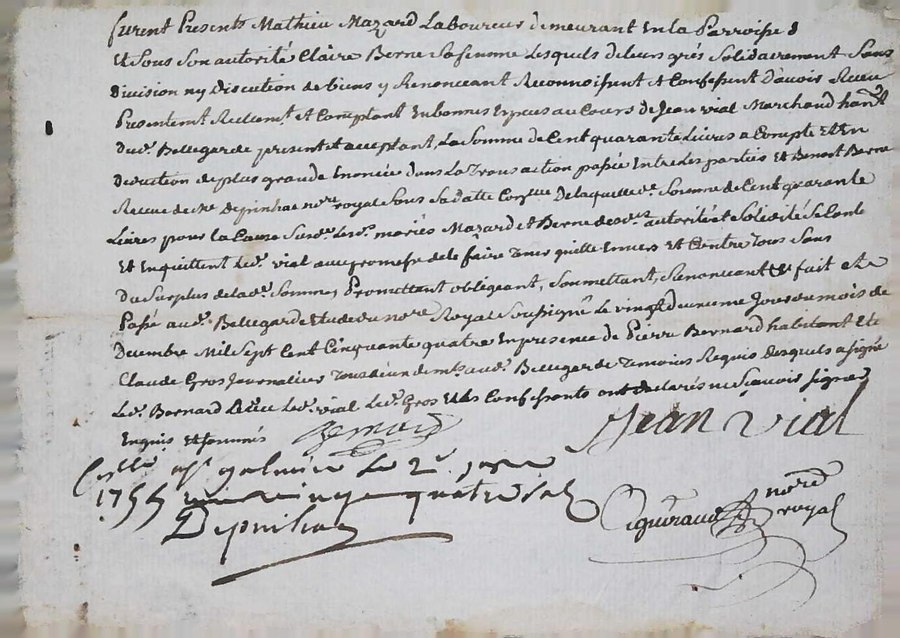 furent Presents Mathieu Mazard Laboureur demeurant En la Parroisse d
Et Sous Son autorité Claire Berne Sa femme Lesquels de leurs grés Solidairement Sans
division ny Discution de biens y Renonceant Reconnoissent et Confessent D'avoir Receu
Presentemt Reellemt et Comptant En bonnes Especes au Cours de Jean vial Marchand hant
dud. Bellegarde present et acceptant, La Somme de Cent quarante Livres a Compte et En
Deduction de plus grande Enoncée dans La Transaction passée Entre les parties et Benoit Berne
Receue de Me Depinhac nore royal Sous Sa datte Laquelle de Somme de Cent quarante
Livres pour la Cause Susd. Lesd. mariés Mazard et Berne autorité et Solidité Se Contente
Et En quittent Led. vial avec promesse de le faire Tenir quitte Envers Et Contre Tous Sans
Du Surplus de lad. Somme, Promettant obligeant, Soumettant, Renonceant fait Et
Passé aud. Bellegarde Etude du nore Royal Soussigné Le vingt deuxieme Jour du mois de
Decembre Mil Sept Cent Cinquante quatre En presence de Pierre Bernard habitant Et de
Claude Gros Journalier Tous deux demts aud. Bellegarde Temoins Requis Desquels a signé
Led. Bernard Et Led. vial Led. Gros Et Les Confessants ont declarés ne Sçavoir signer
Enquis et Sommés
Bernard
Jean vial
Collé a St galmier Le 2e janv
1755 quatre sols
Depinhac
nore
royal